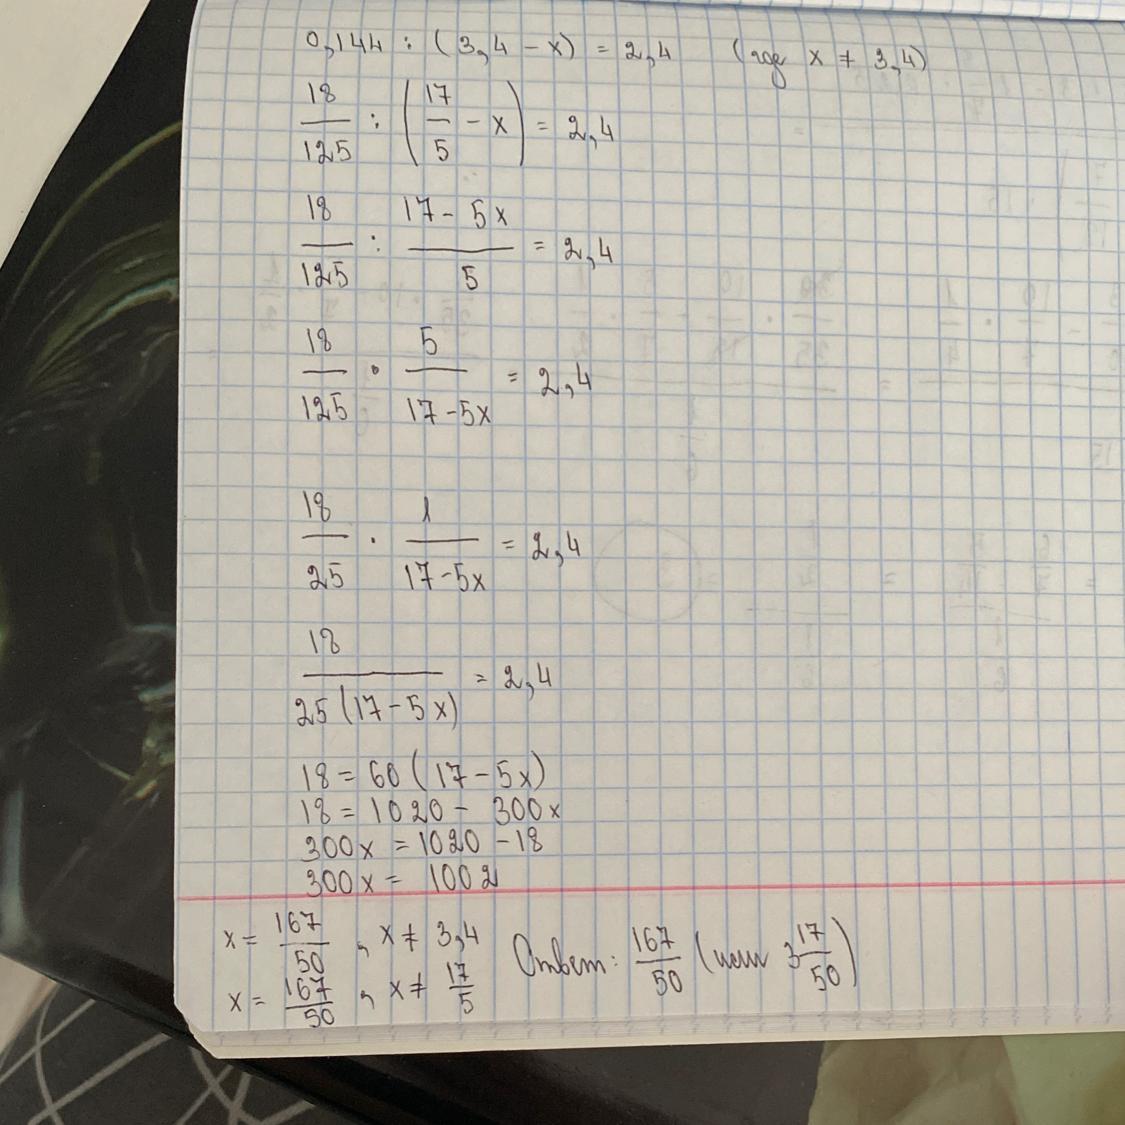 0,144 : (3,4 - x) = 2,4 (где x ≠ 3,4)
18/125 : (17/5 - x) = 2,4
18/125 : (17 - 5x)/5 = 2,4
18/125 · 5/(17 - 5x) = 2,4
18/25 · 1/(17 - 5x) = 2,4
18/(25(17 - 5x)) = 2,4
18 = 60(17 - 5x)
18 = 1020 - 300x
300x = 1020 - 18
300x = 1002
x = 167/50, x ≠ 3,4
x = 167/50, x ≠ 17/5
Ответ: 167/50 (или 3 17/50)